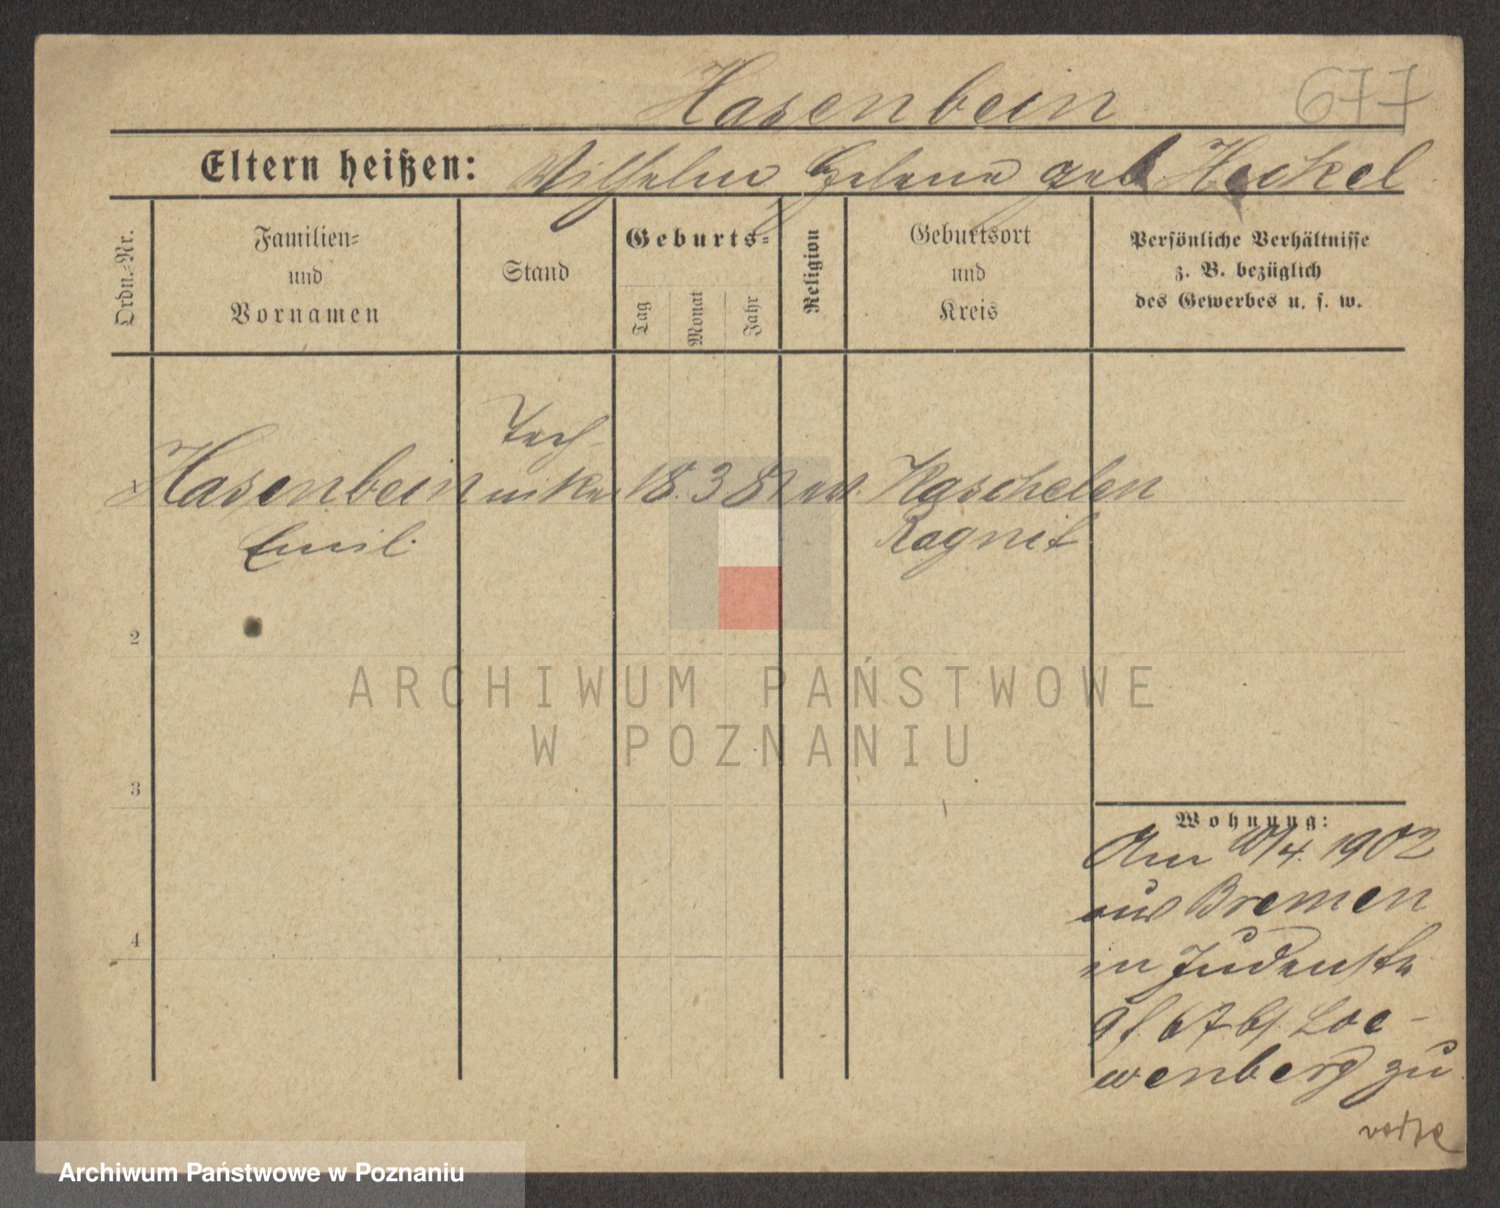 Hasenbein 677
Eltern heißen: Wilhelm Helene geb Heckel
Ordn.-Nr.
Familien-
und
Vornamen
Stand
Geburts-
Tag
Monat
Jahr
Religion
Geburtsort
und
Kreis
Persönliche Verhältnisse
z. B. bezüglich
des Gewerbes u. s. w.
Tech-
Hasenbein niker 18. 3 81 ev. Raschelen
Emil Ragnit
2
3
4
Wohnung:
Am /4. 1902
aus Bremen
in Judenstr
b/ Loe-
wenberg zu
ARCHIWUM PAŃSTWOWE
W POZNANIU
Archiwum Państwowe w Poznaniu